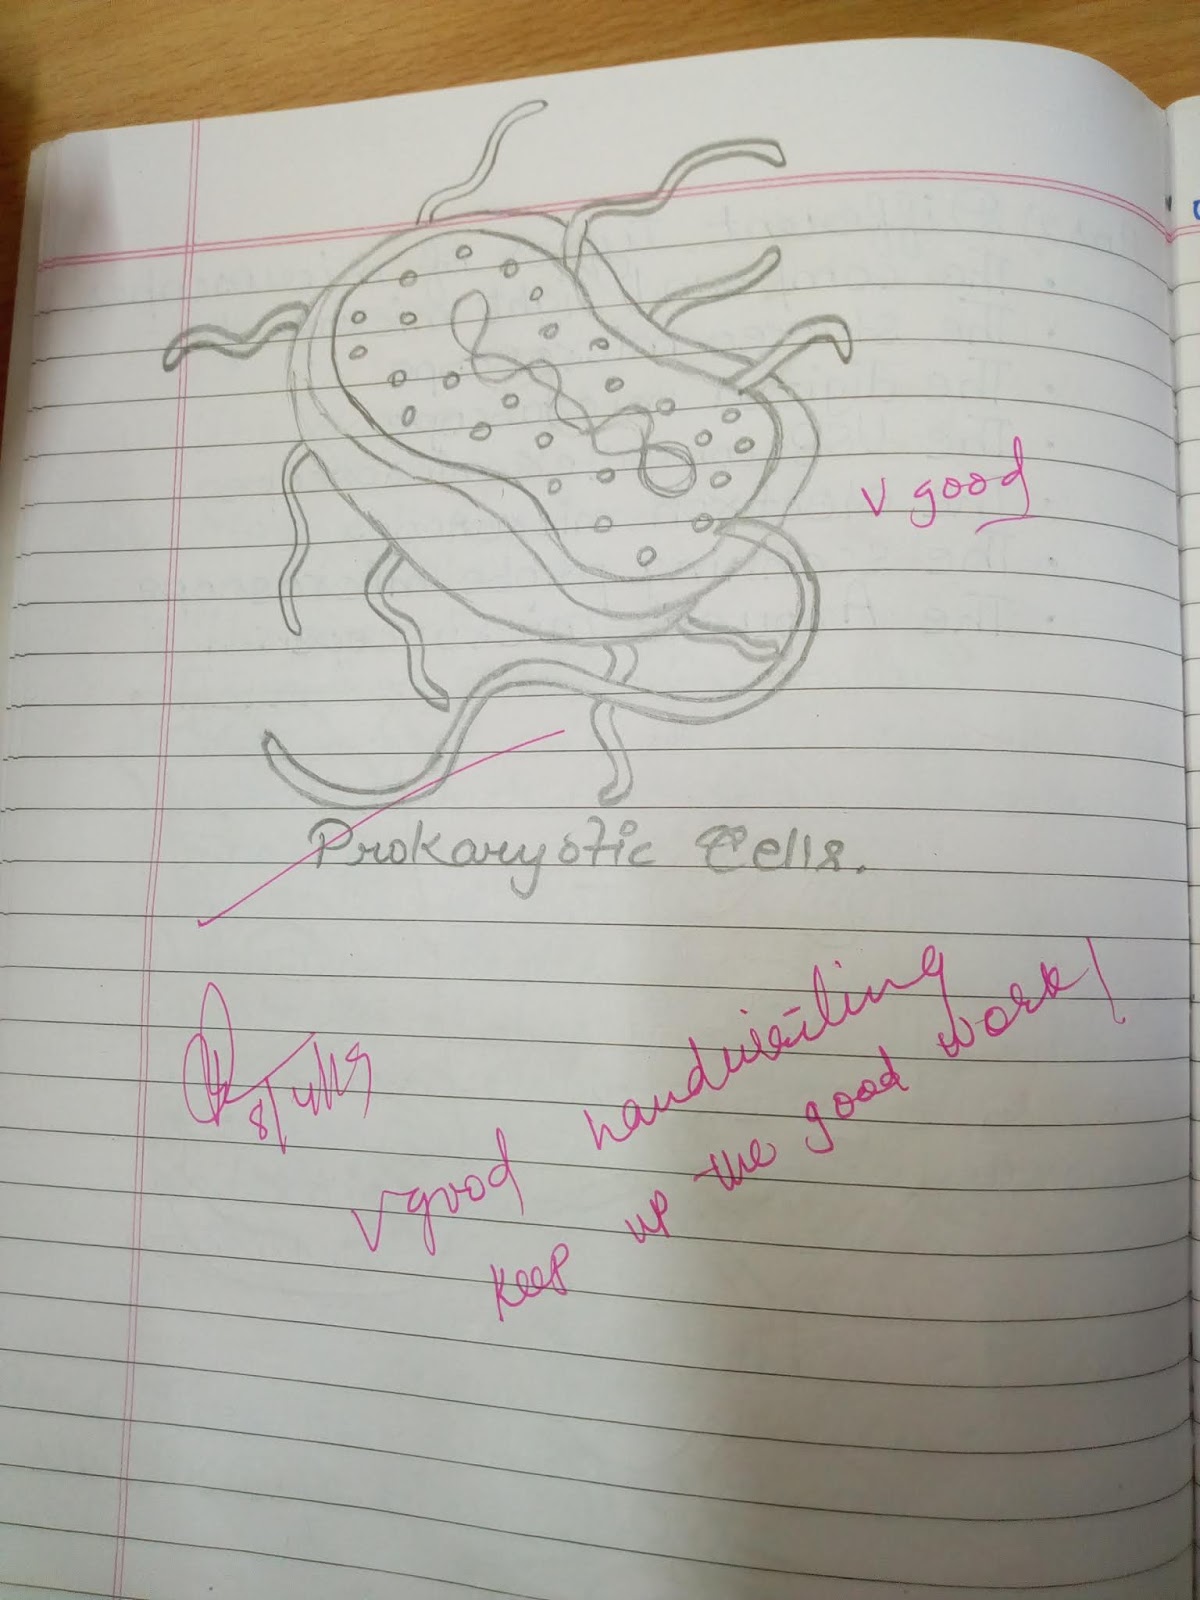 v good
Prokaryotic Cells.
8/4/19
v good handwriting
keep up the good work!